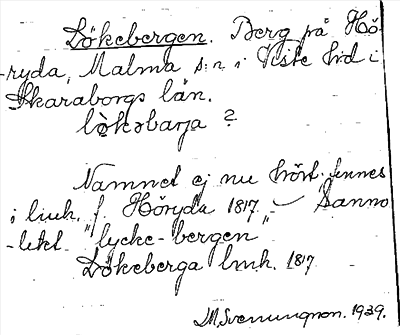 Lökebergen. Berg på Hö-
-ryda, Malma s:n i Viste hd i
Skaraborgs län.
lökəbarja ?
Namnet ej nu hört, finnes
i liuk. f. Höryda 1817. Sanno
-likt "lycke-bergen"
Lökeberga lmk. 1817
1939.